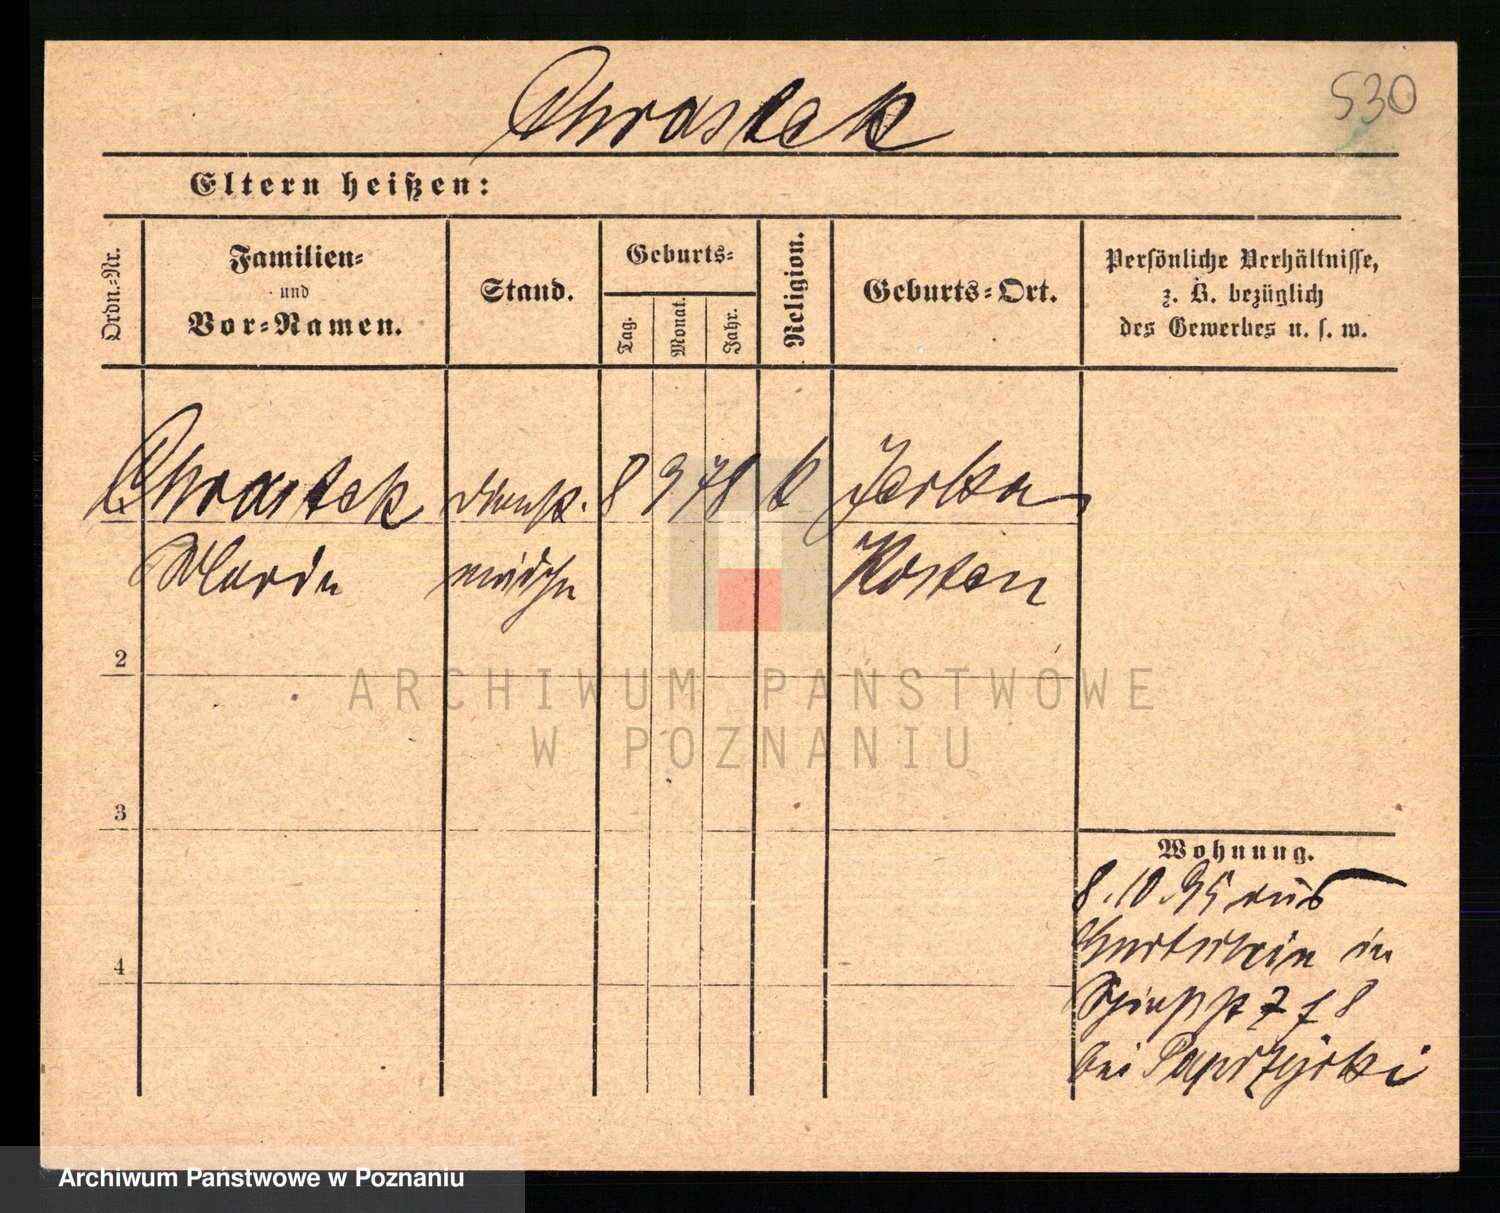 Chrastek
530
Eltern heißen:
Ordn.-Nr.
Familien-
und
Vor-Namen.
Stand.
Geburts-
Tag.
Monat.
Jahr.
Religion.
Geburts-Ort.
Persönliche Verhältnisse,
z. B. bezüglich
des Gewerbes u. s. w.
Chrastek Dienst. 8 9 78 k Jerka
Maria mädchen Kosten
2
3
4
Wohnung.
8.10.95 aus
in
7 f 8
bei Paprzycki
ARCHIWUM PAŃSTWOWE
W POZNANIU
Archiwum Państwowe w Poznaniu